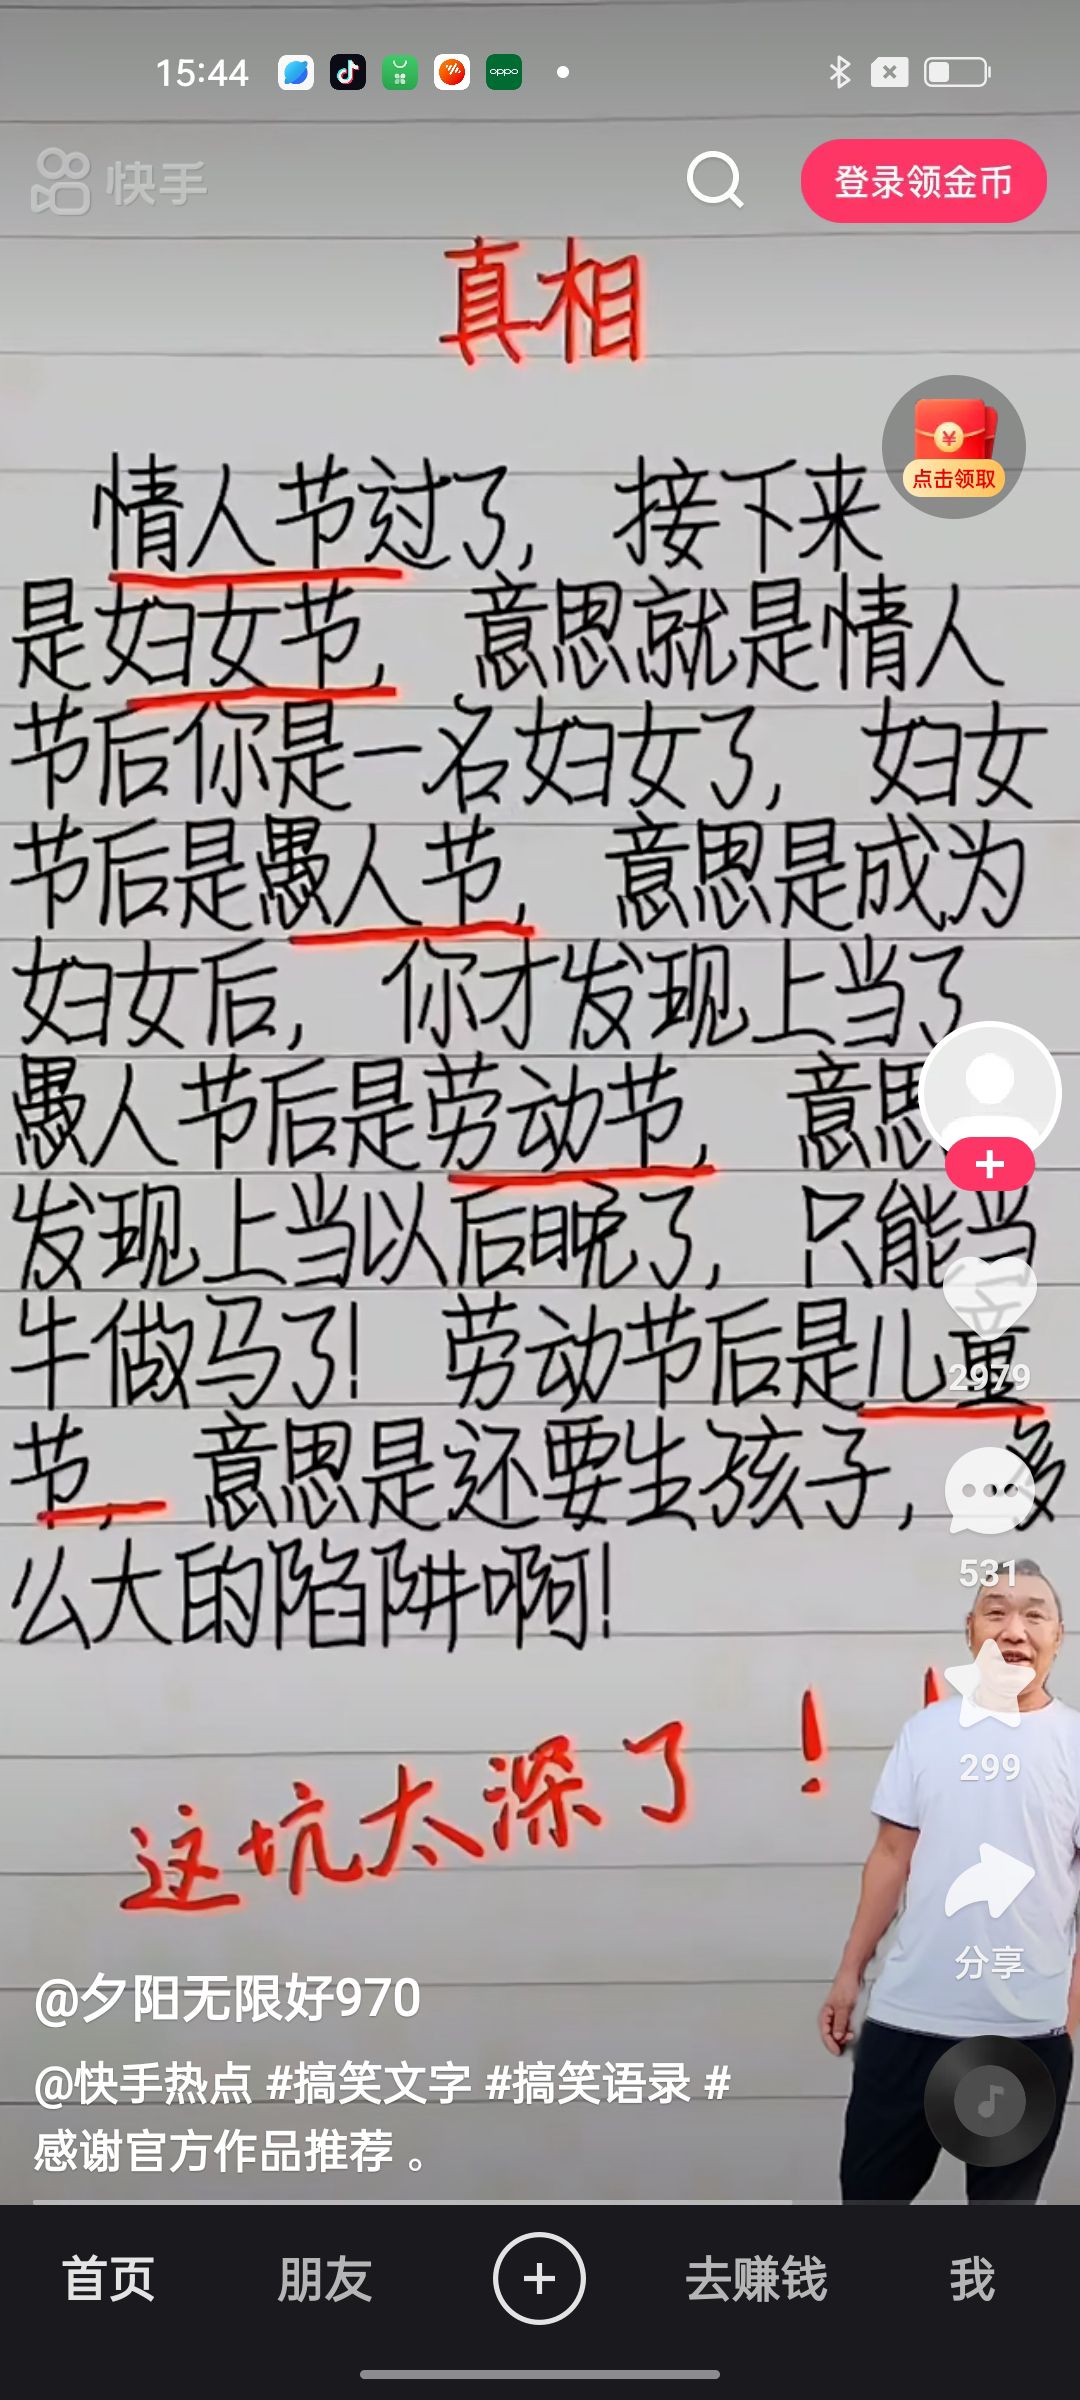 15:44
oppo
快手
登录领金币
真相
点击领取
情人节过了, 接下来
是妇女节, 意思就是情人
节后你是一名妇女了, 妇女
节后是愚人节, 意思是成为
妇女后, 你才发现上当了
愚人节后是劳动节, 意思
发现上当以后晚了, 只能当
牛做马了! 劳动节后是儿童
节, 意思是还要生孩子,
么大的陷阱啊!
2979
531
299
这坑太深了!!
分享
@夕阳无限好970
@快手热点 #搞笑文字 #搞笑语录 #
感谢官方作品推荐 。
首页 朋友 去赚钱 我